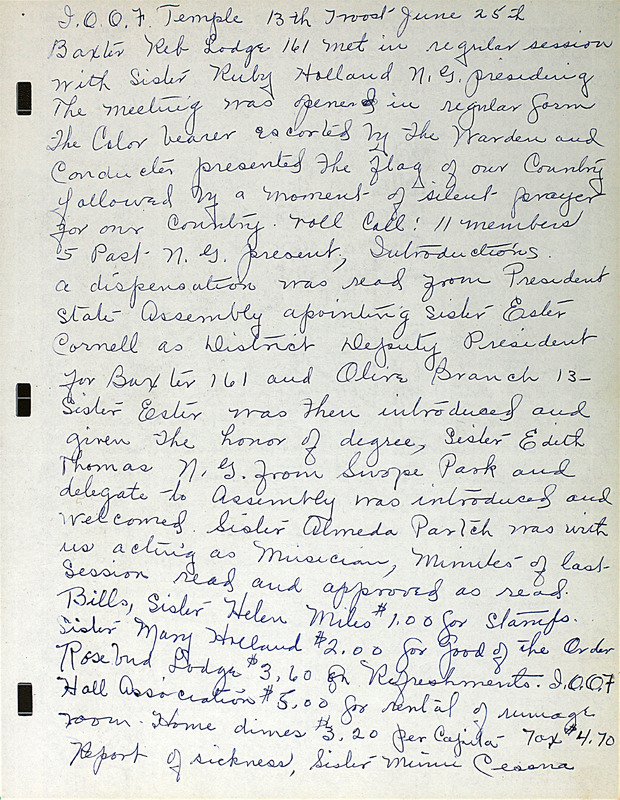 I.O.O.F. Temple 13th Troost June 25th
Baxter Reb Lodge 161 met in regular session
with Sister Ruby Holland N.G. presiding
The meeting was opened in regular form
The Color bearer escorted by The Warden and
Conducter presented The flag of our Country
followed by a moment of silent prayer
for our Country. roll Call: 11 members
5 Past N.G. present, Introductions.
a dispensation was read from President
State Assembly apointing Sister Ester
Cornell as District Deputy President
for Baxter 161 and Olive Branch 13-
Sister Ester was Then introduced and
given The honor of degree, Sister Edith
Thomas N.G. from Swope Park and
delegate to Assembly was introduced and
welcomed. Sister Almeda Partch was with
us acting as Musician, Minutes of last
Session read and approved as read.
Bills, Sister Helen Miles $1.00 for Stamps.
Sister Mary Holland $2.00 for Good of the Order
Rosebud Lodge $3.60 for Refreshments. I.O.O.F
Hall Association $5.00 for rental of rumage
room. Home dimes $3.20 per Capita Tax $4.70
Report of sickness, Sister Minnie Cessna